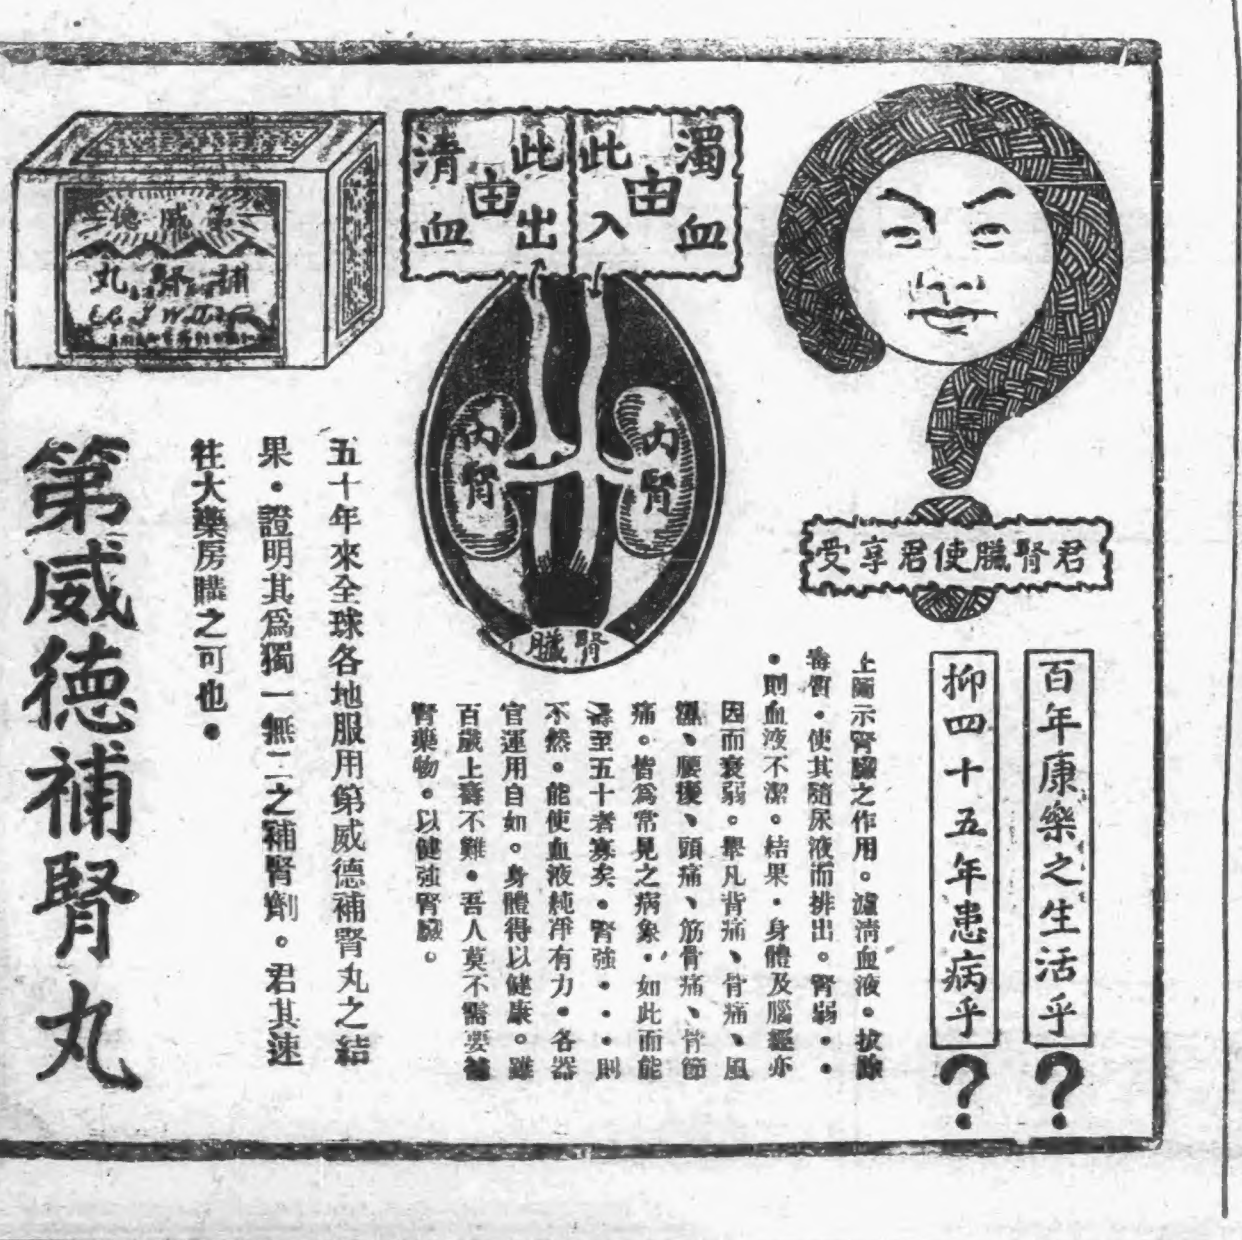 君腎臟使君享受
百年康樂之生活乎?
抑四十五年患病乎?
濁血由此入
清血由此出
內腎
內腎
腎臟
上圖示腎臟之作用。濾清血液。拔除
毒質.使其隨尿液而排出。腎弱..
.則血液不潔。結果.身體及腦經亦
因而衰弱。舉凡背痛、骨痛、風
濕、腰痠、頭痛、筋骨痛、骨節
痛。皆爲常見之病象.如此而能
壽至五十者寡矣.腎強...則
不然.能使血液純淨有力.各器
官運用自如。身體得以健康。雖
百歲上壽不難.吾人莫不需要補
腎藥物.以健強腎臟。
補腎丸
五十年來全球各地服用第威德補腎丸之結
果.證明其爲獨一無二之補腎劑。君其速
往大藥房購之可也.
第威德補腎丸